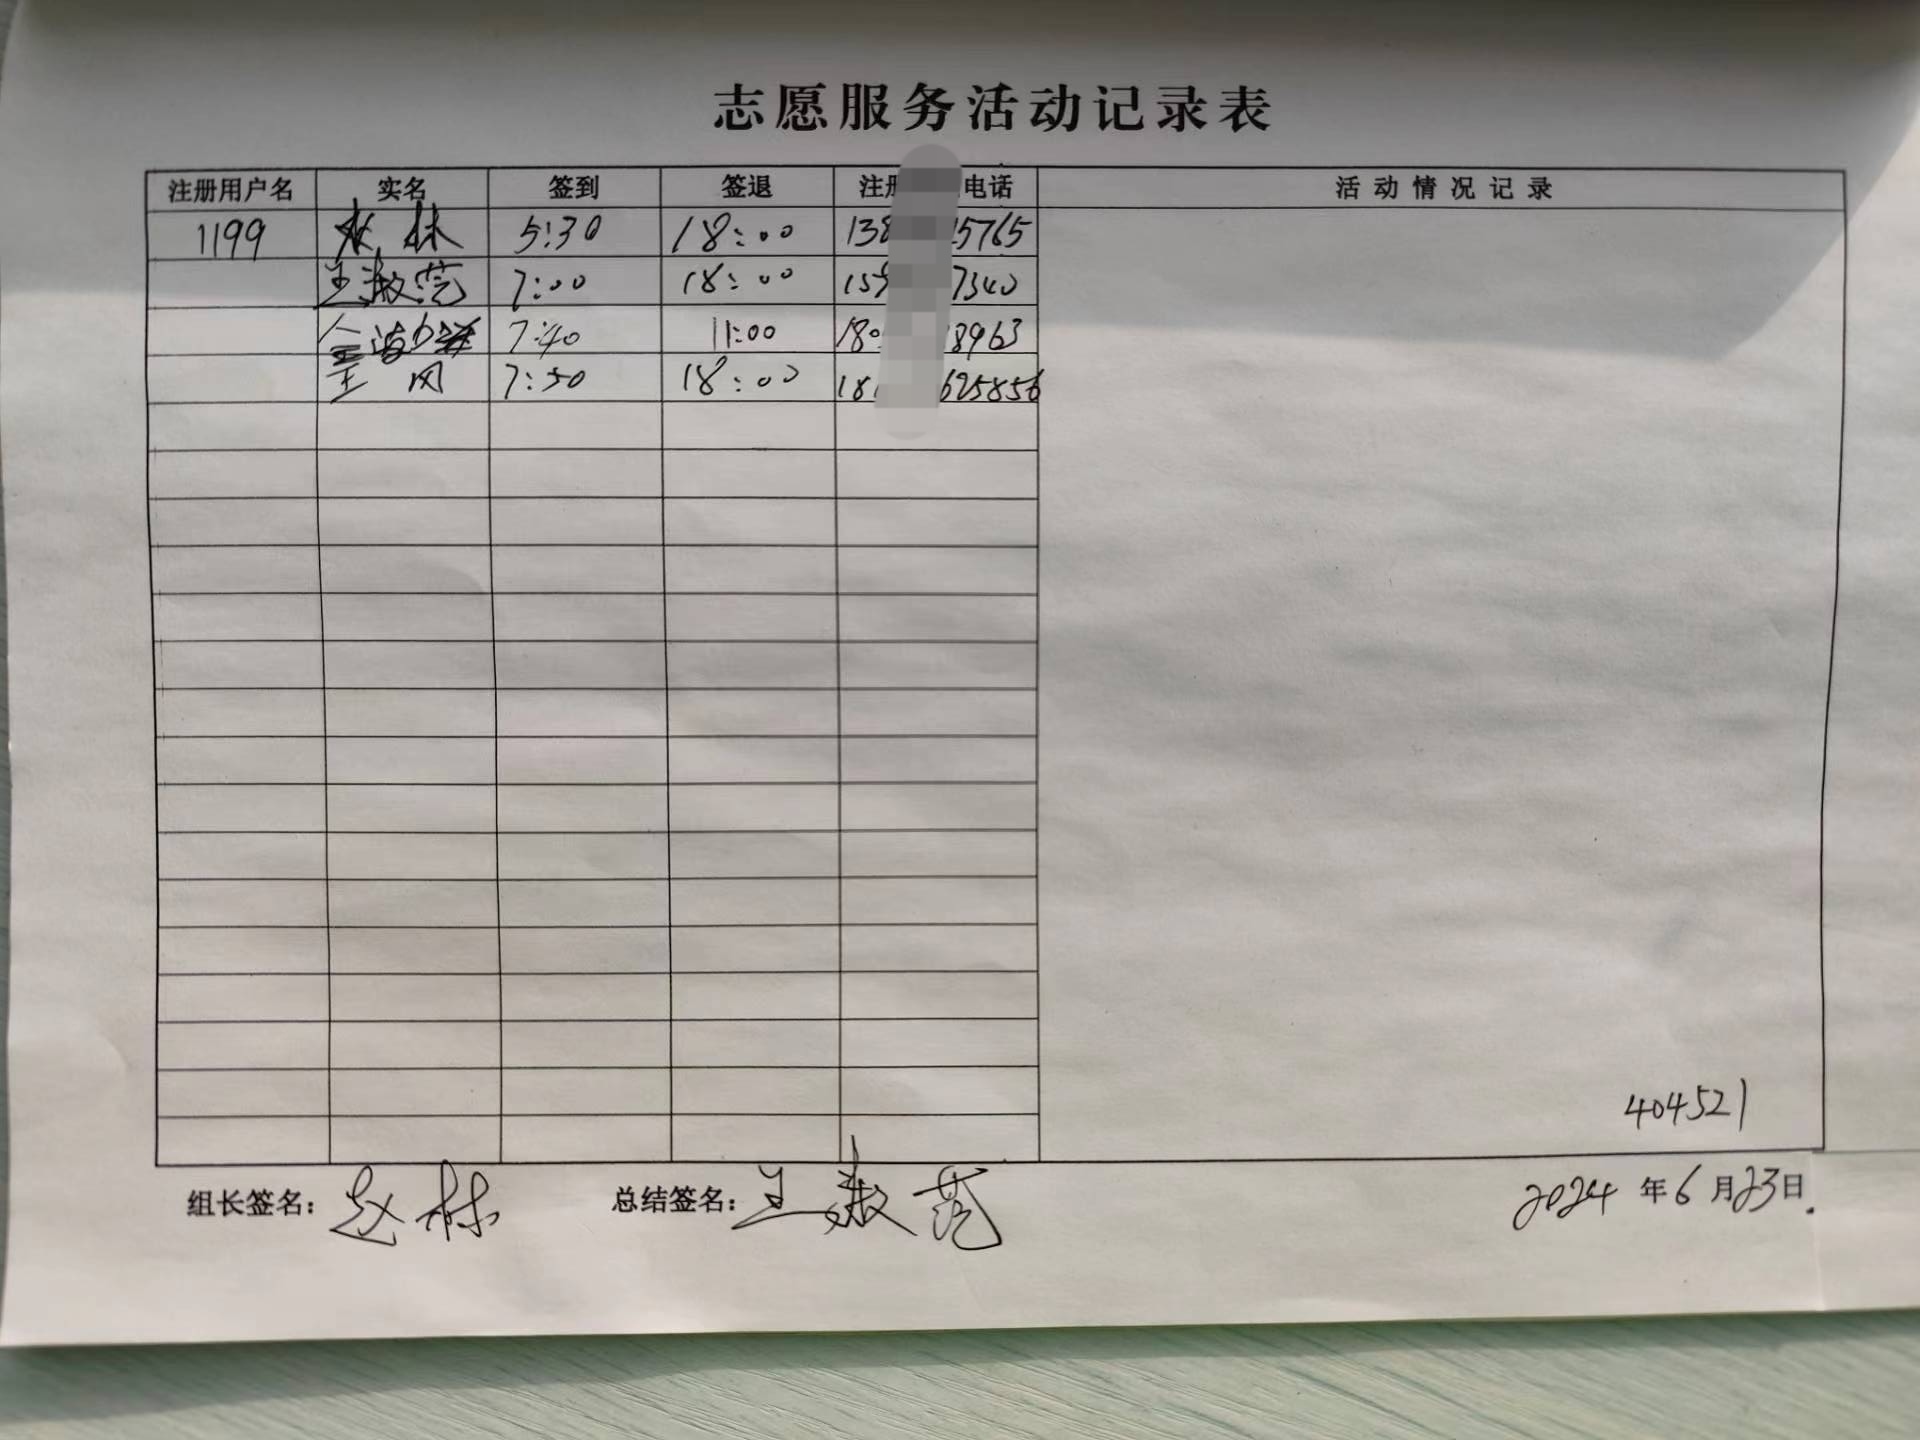 志愿服务活动记录表
注册用户名 实名 签到 签退 注册 电话 活动情况记录
1199 林 5:30 18:00 138 5765
王淑范 7:00 18:00 159 7340
7:40 11:00 180 8963
王 风 7:50 18:00 181 625856
404521
组长签名: 赵林 总结签名: 王淑范 2024年6月23日.